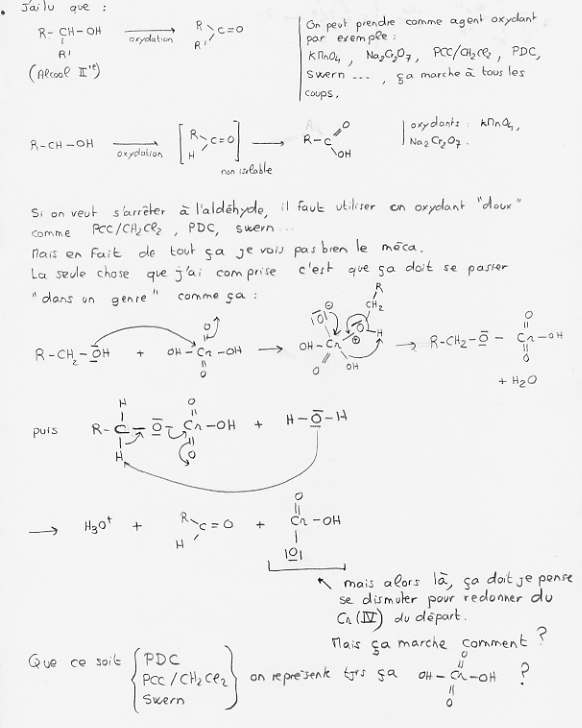 • J'ai lu que :
R-CH-OH oxydation R C=O
R' R'
(Alcool II're)
On peut prendre comme agent oxydant
par exemple :
KMnO4, Na2Cr2O7, PCC/CH2Cl2, PDC,
Swern ..., ça marche à tous les
coups.
R-CH-OH oxydation [R C=O H] non isolable R-C O OH
oxydants : KMnO4,
Na2Cr2O7.
Si on veut s'arrêter à l'aldéhyde, il faut utiliser un oxydant "doux"
comme PCC/CH2Cl2, PDC, Swern ...
Mais en fait de tout ça je vois pas bien le méca.
La seule chose que j'ai comprise c'est que ça doit se passer
"dans un genre" comme ça :
R-CH2-OH + OH-Cr-OH O O → OH-Cr O O OH O H CH2 R ⊖ ⊕ → R-CH2-O-Cr-OH O O
+ H2O
puis R-C-O-Cr-OH H H O O + H-O-H
→ H3O+ + R C=O H + O Cr-OH |O|
mais alors là, ça doit je pense
se dismuter pour redonner du
Cr(IV) du départ.
Mais ça marche comment ?
Que ce soit { PDC
PCC/CH2Cl2
Swern } on représente tjrs ça OH-Cr-OH O O ?